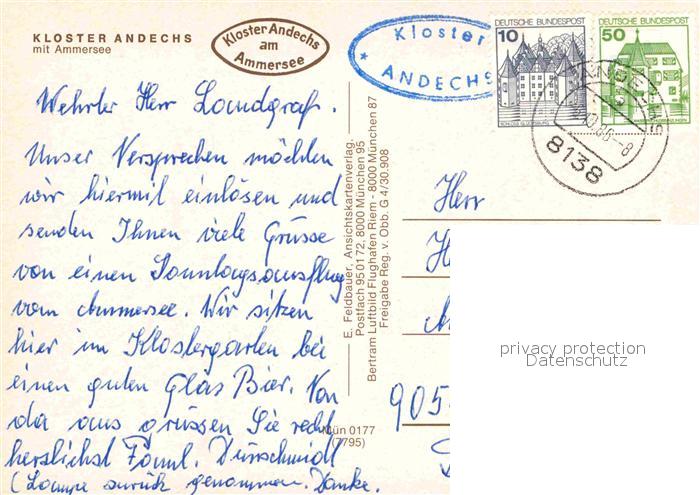 KLOSTER ANDECHS
mit Ammersee
Kloster Andechs
am
Ammersee
Kloster
ANDECHS
DEUTSCHE BUNDESPOST
10
SCHLOSS GLÜCKSBURG
DEUTSCHE BUNDESPOST
50
8138
Wehrter Herr Landgraf.
Unser Versprechen möchten
wir hiermit einlösen und
senden Ihnen viele Grüsse
von einen Sonntagsausflug
vom Ammersee. Wir sitzen
hier im Klostergarten bei
einen guten Glas Bier. Von
da aus grüssen Sie recht
herzlichst Faml. Dürschmidl
(Lampe zurück genommen. Danke.
E. Feldbauer, Ansichtskartenverlag,
Postfach 95 01 72, 8000 München 95
Bertram Luftbild Flughafen Riem - 8000 München 87
Freigabe Reg. v. Obb. G 4/30.908
Mün 0177
(7795)
Herr
905
privacy protection
Datenschutz